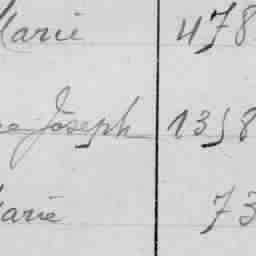 Marie 478
Joseph 1358
Marie 73